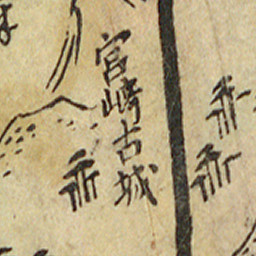 宮崎古城